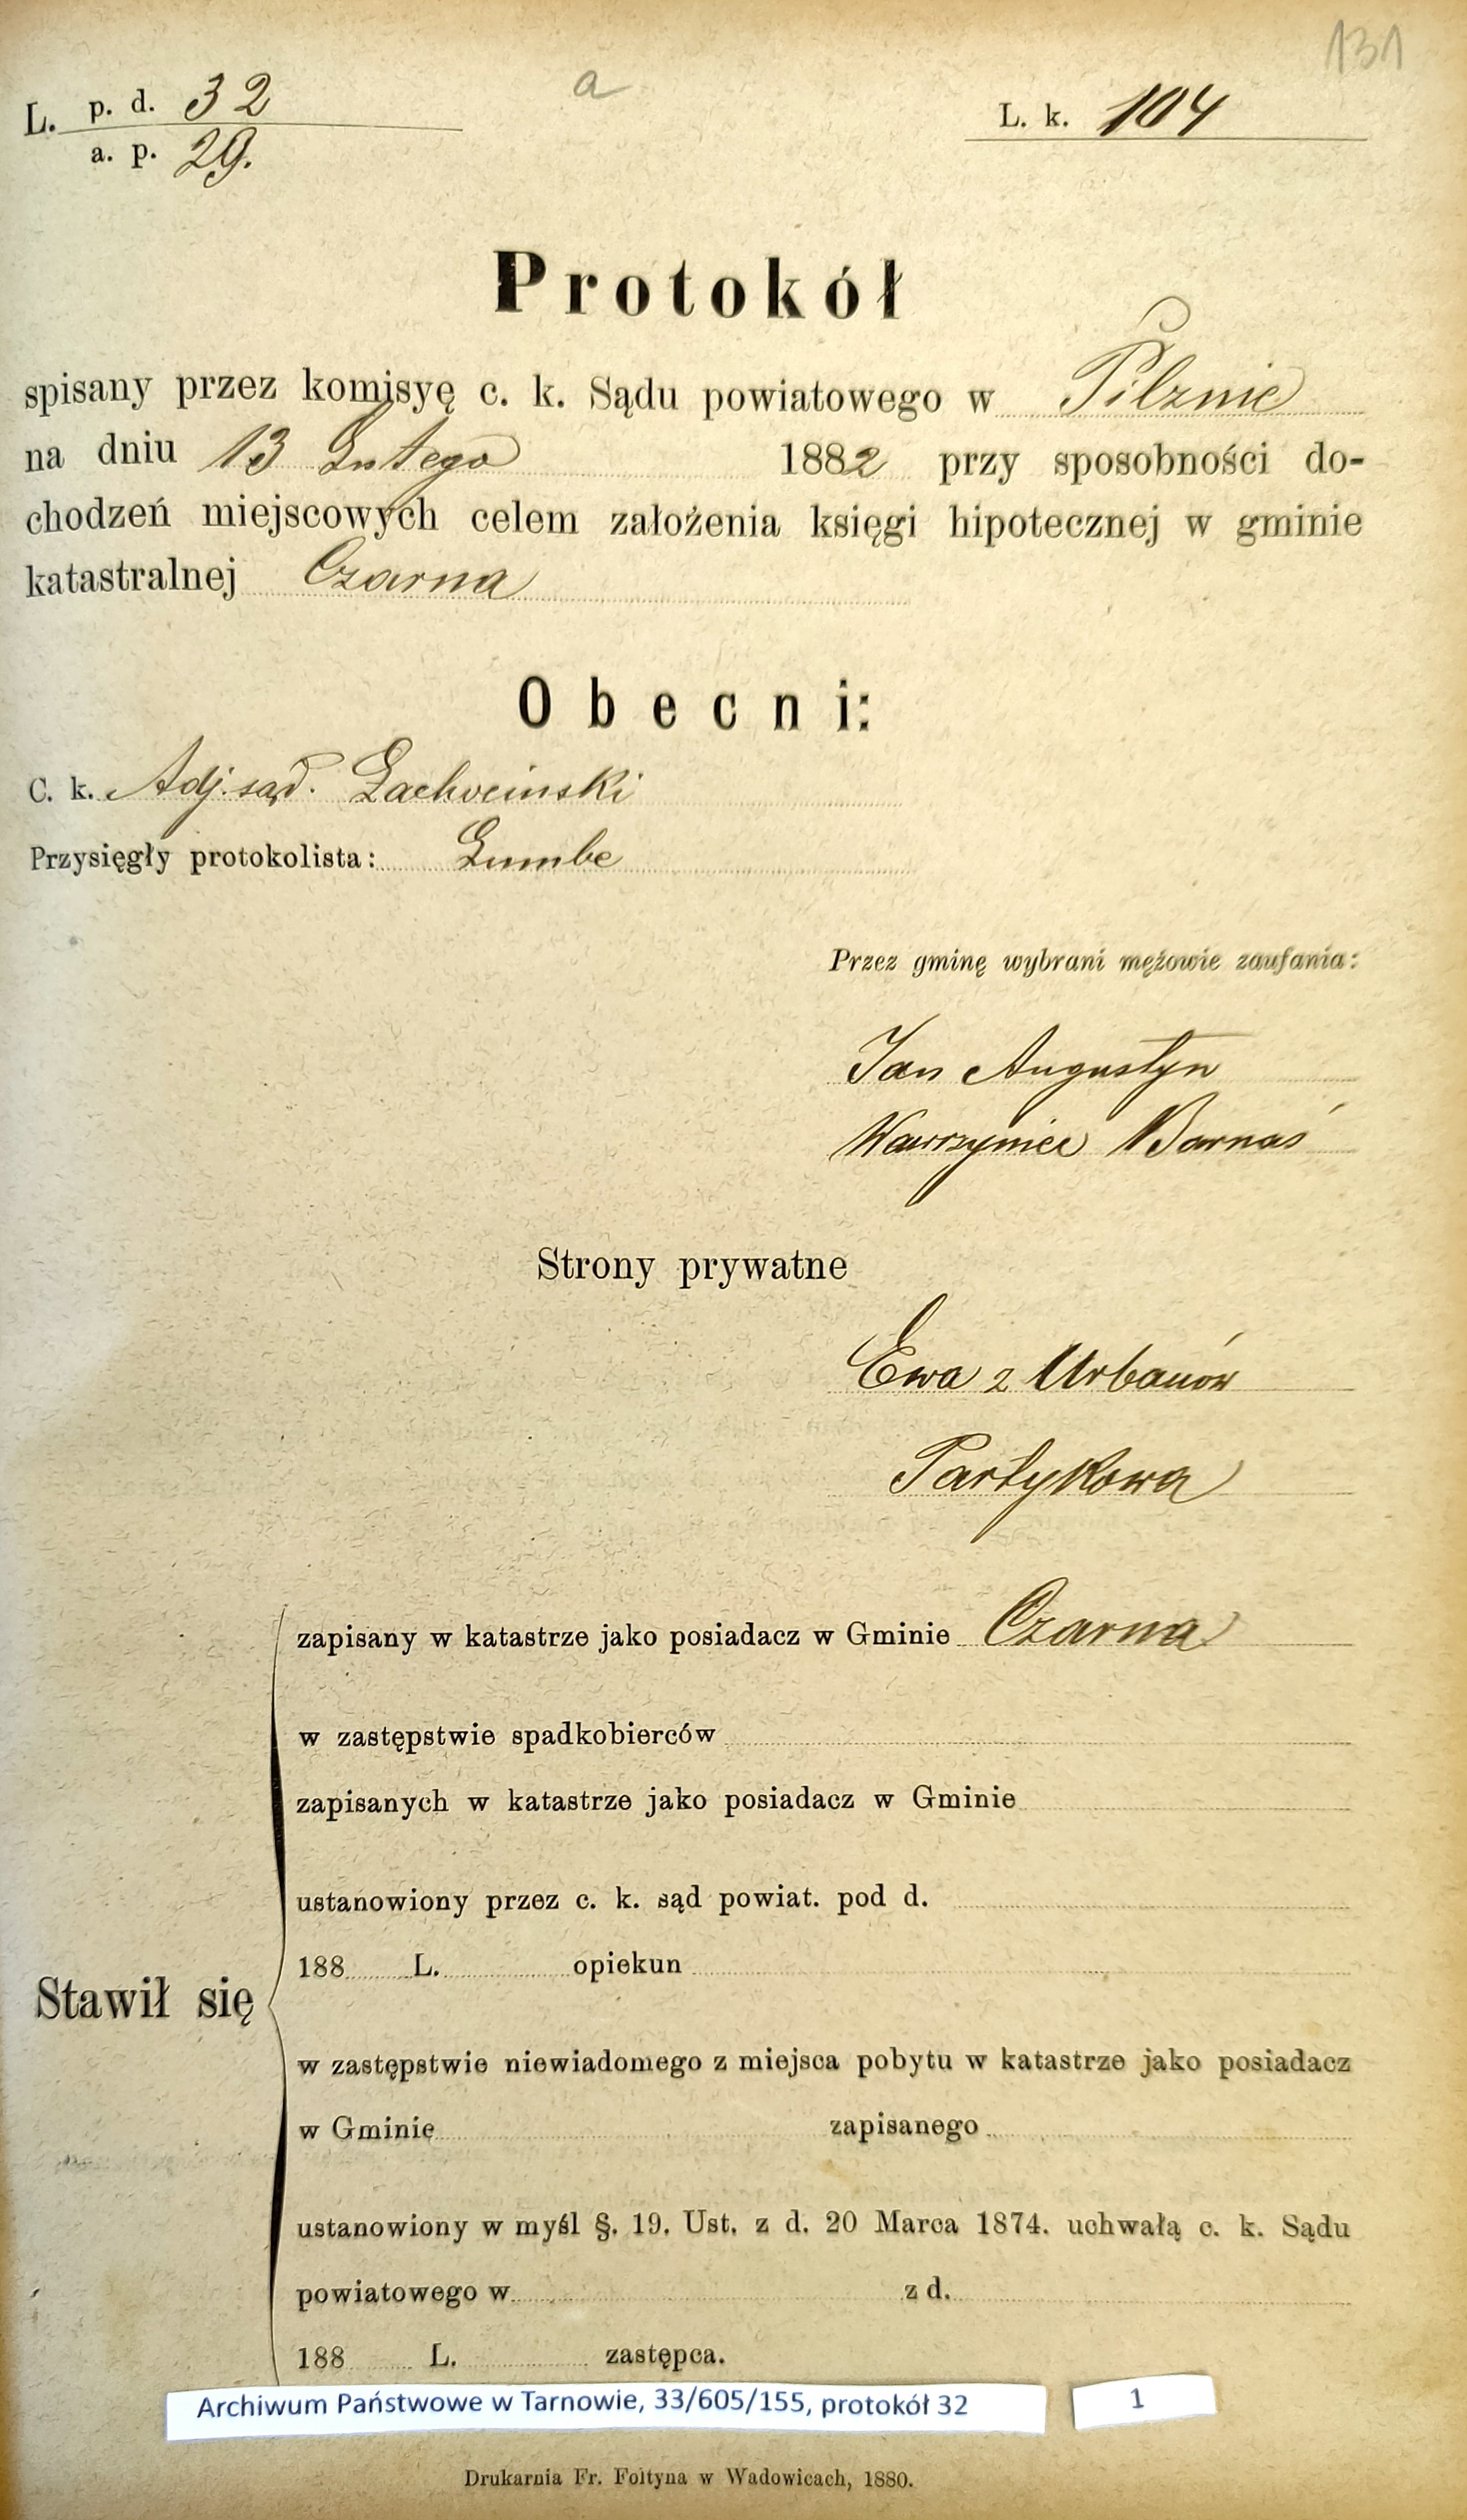 131
a
L. p. d. 32
a. p. 29.
L. k. 104
Protokół
spisany przez komisyę c. k. Sądu powiatowego w Pilznie
na dniu 13 Lutego 1882 przy sposobności do-
chodzeń miejscowych celem założenia księgi hipotecznej w gminie
katastralnej Czarna
Obecni:
C. k. Adj. sąd.
Przysięgły protokolista: Lumbe
Przez gminę wybrani mężowie zaufania:
Jan Augustyn
Wawrzyniec Barnaś
Strony prywatne
Ewa z Urbanów
Partykowa
zapisany w katastrze jako posiadacz w Gminie Czarna
w zastępstwie spadkobierców
zapisanych w katastrze jako posiadacz w Gminie
ustanowiony przez c. k. sąd powiat. pod d.
188 L. opiekun
Stawił się
w zastępstwie niewiadomego z miejsca pobytu w katastrze jako posiadacz
w Gminie zapisanego
ustanowiony w myśl §. 19. Ust. z d. 20 Marca 1874. uchwałą c. k. Sądu
powiatowego w z d.
188 L. zastępca.
Archiwum Państwowe w Tarnowie, 33/605/155, protokół 32
1
Drukarnia Fr. Foltyna w Wadowicach, 1880.